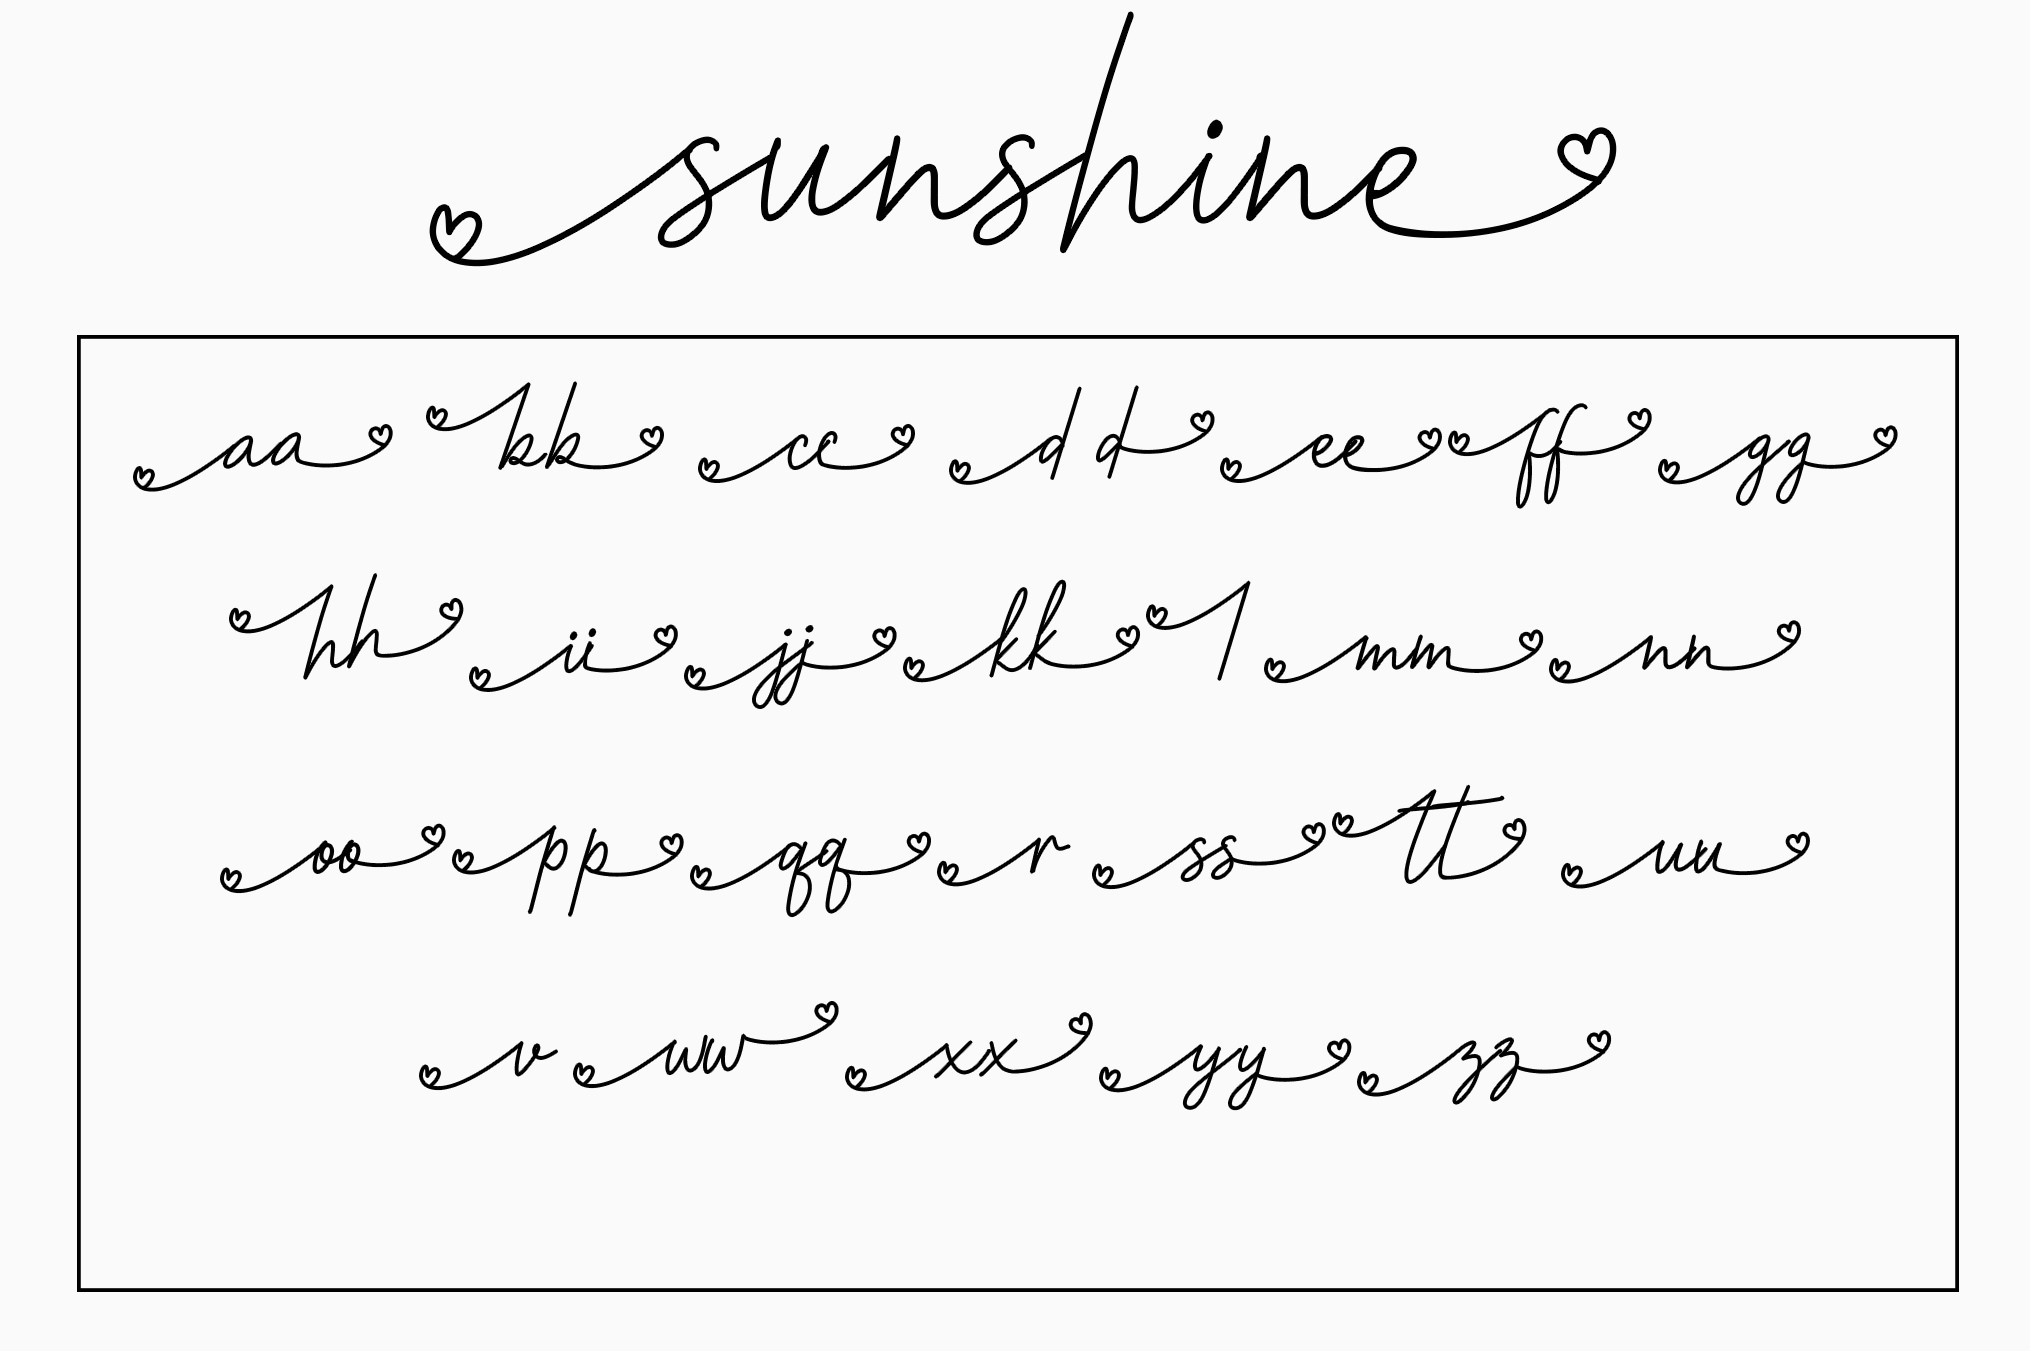 sunshine
aa bb cc d d ee ff gg
hh ii jj kk l mm nn
oo pp qq r ss tt uu
v ww xx yy zz